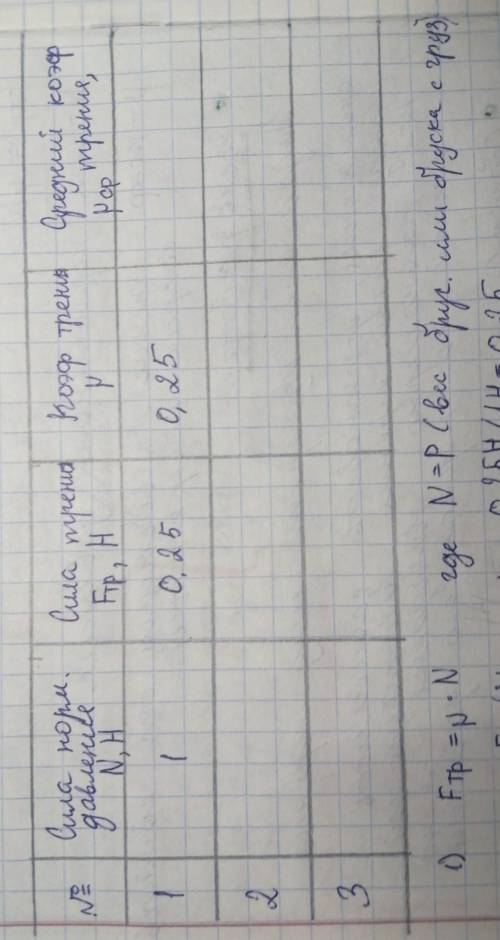 № Сила норм. давление N, Н Сила трения Fтр, Н Коэф трения μ Средний коэф трения, μср
1 1 0,25 0,25
2
3
1) Fтр = μ · N где N = P (вес брус. или бруска с груз)
0,25Н/1Н = 0,25